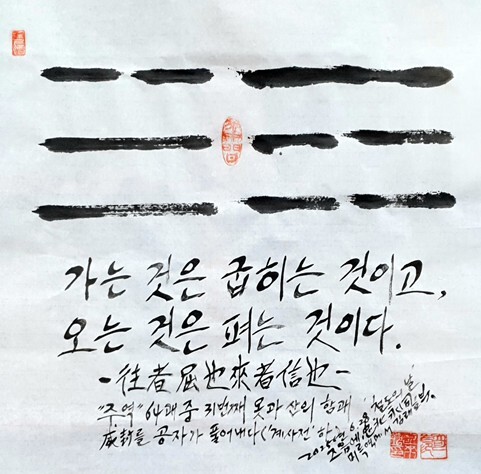 가는 것은 굽히는 것이고,
오는 것은 펴는 것이다.
- 往者屈也來者信也 -
"주역" 64괘 중 31번째 못과 산의 함괘
咸卦를 공자가 풀어내다('계사전' 하)
2025년 6.28 '철도의 날'